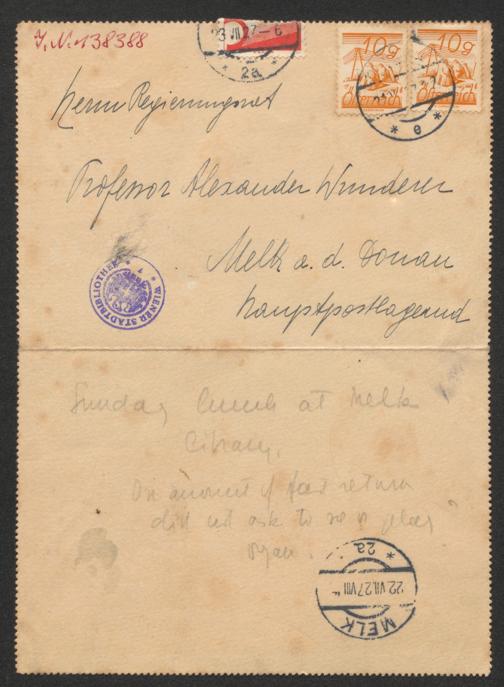 J.N. 138388
23.VII.27
* 2a *
10g 10g
Österreich Österreich
* e *
Herrn Regierungsrat
Professor Alexander Wunderer
Melk a. d. Donau
Hauptpostlagernd
* WIENER STADTBIBLIOTHEK *
Sunday lunch at Melk
Library.
On account of fast return
did not ask to see or play
organ.
* 2a
22.VII.27 VIII
MELK